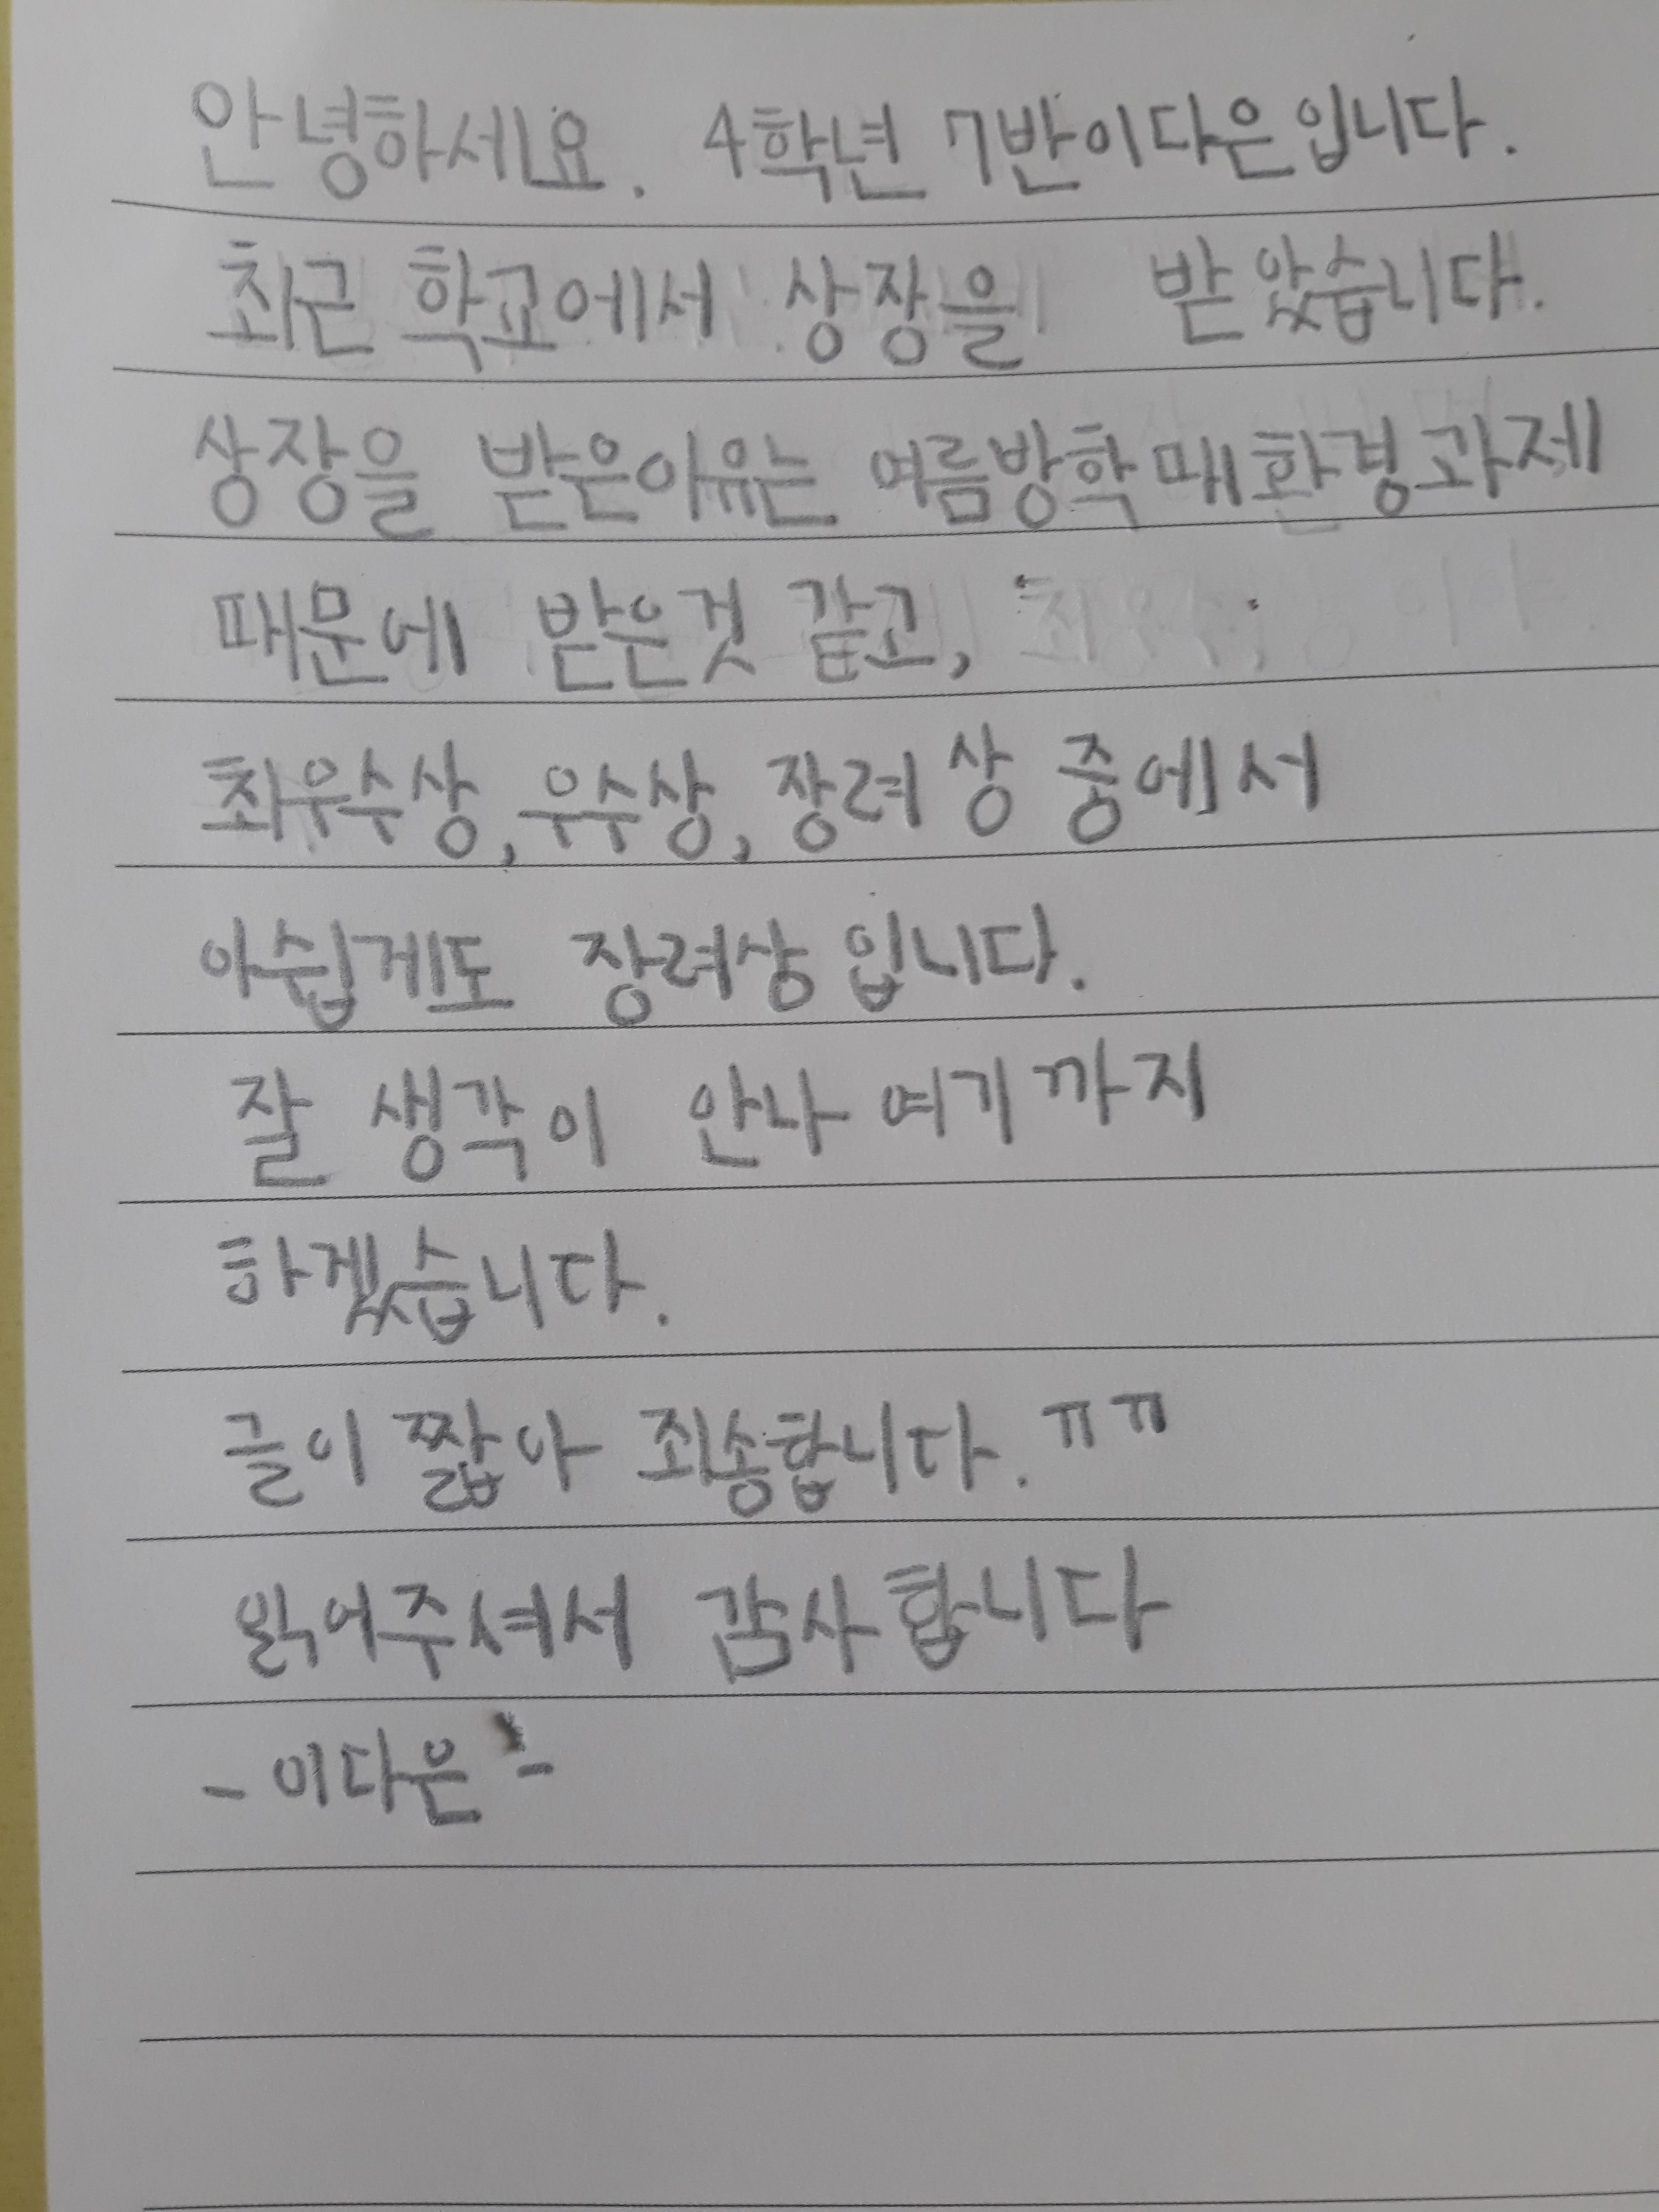 안녕하세요. 4학년 7반이다은입니다.
최근 학교에서 상장을 받았습니다.
상장을 받은이유는 여름방학때환경과제
때문에 받은것 같고,
최우수상, 우수상, 장려상 중에서
아쉽게도 장려상입니다.
잘 생각이 안나 여기까지
하겠습니다.
글이 짧아 죄송합니다. ㅠㅠ
읽어주셔서 감사합니다
- 이다은 -